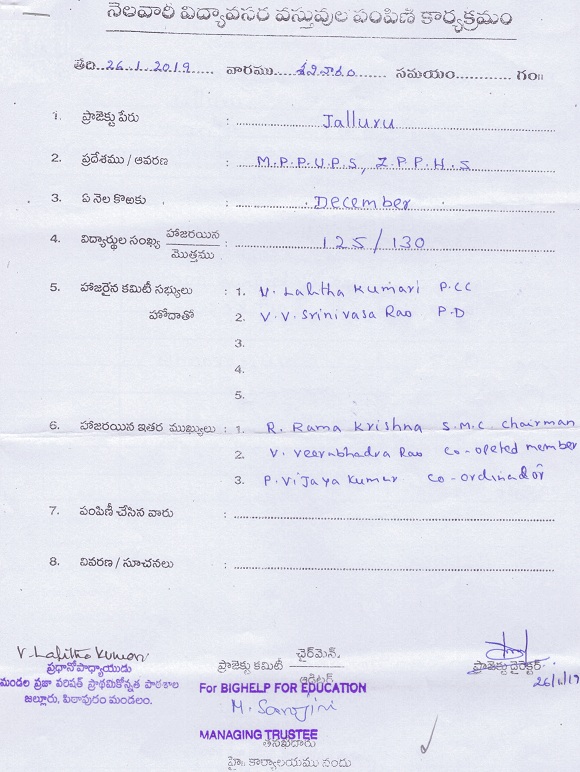 నెలవారి విద్యావసర వస్తువుల పంపిణి కార్యక్రమం
తేది 26.1.2019 వారము శనివారం సమయం గం॥
1. ప్రాజెక్టు పేరు : Jalluru
2. ప్రదేశము / ఆవరణ : M.P.P.U.P.S, Z.P.P.H.S
3. ఏ నెల కొఱకు : December
4. విద్యార్థుల సంఖ్య హాజరయిన / మొత్తము : 125/130
5. హాజరైన కమిటీ సభ్యులు : 1. V. Lalitha Kumari P.CC
హోదాతో 2. V.V. Srinivasa Rao P.D
3.
4.
5.
6. హాజరయిన ఇతర ముఖ్యులు : 1. R. Rama Krishna S.M.C. Chairman
2. V. Veerabhadra Rao Co-opeted member
3. P. Vijaya Kumar Co-ordinador
7. పంపిణీ చేసిన వారు :
8. వివరణ / సూచనలు :
V. Lalitha Kumari
ప్రధానోపాధ్యాయుడు
మండల ప్రజా పరిషత్ ప్రాథమికోన్నత పాఠశాల
జల్లూరు, పిఠాపురం మండలం.
ప్రాజెక్టు కమిటీ ఛైర్మెన్
ఆడిటర్
For BIGHELP FOR EDUCATION
M. Sarojini
MANAGING TRUSTEE
తనిఖీదారు
హై. కార్యాలయము నందు
ప్రాజెక్టు డైరెక్టర్
26/1/19